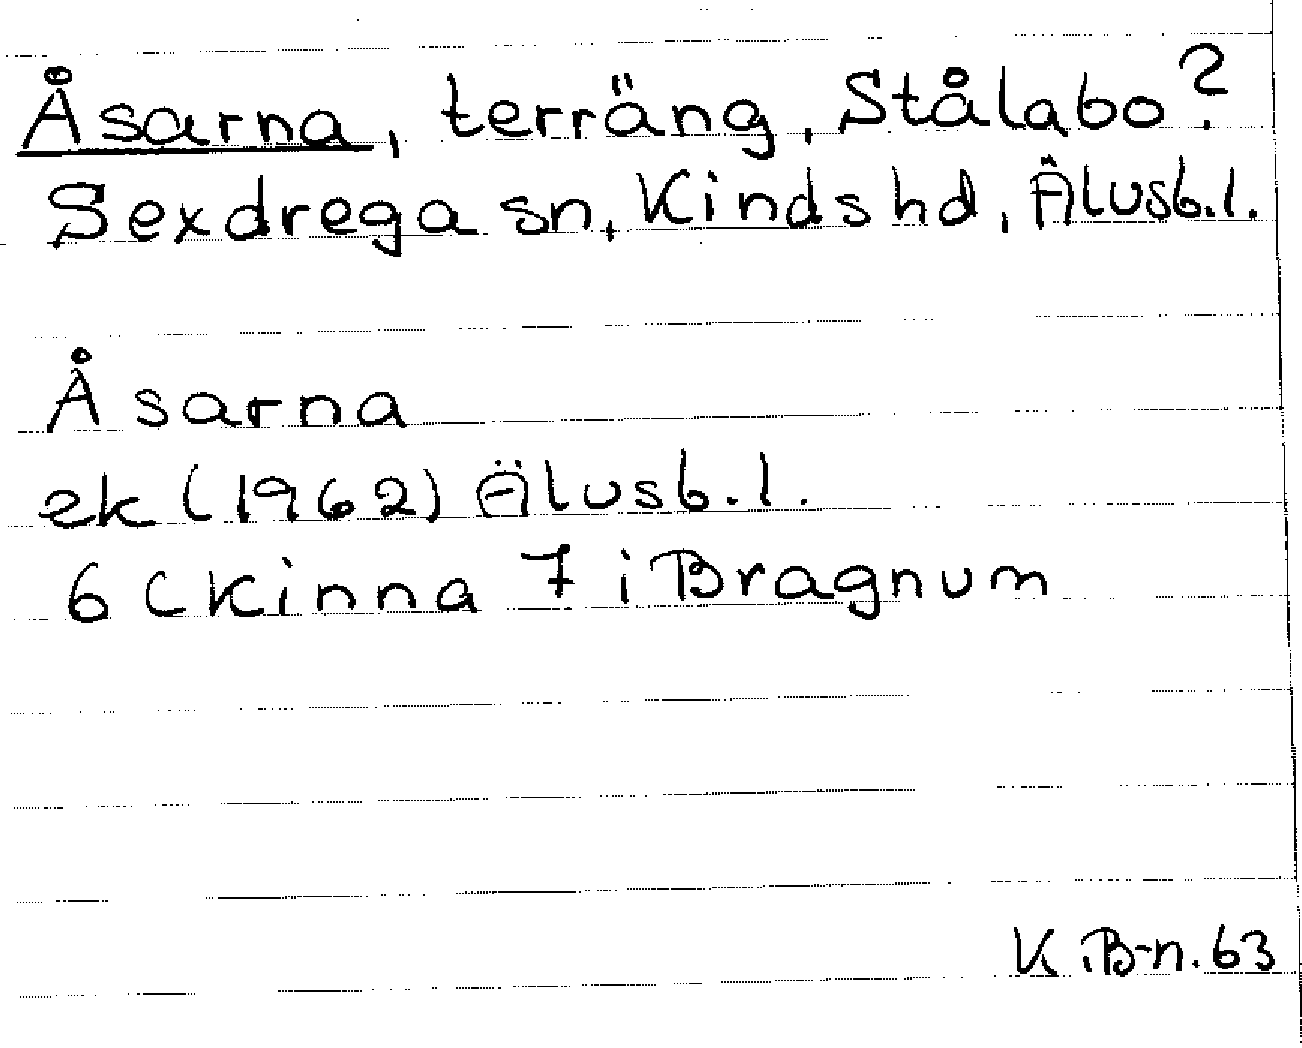 Åsarna, terräng, Stålabo?
Sexdrega sn, Kinds hd, Älvsb.l.
Åsarna
ek (1962) Älvsb.l.
6 C Kinna 7 i Bragnum
K B-n. 63